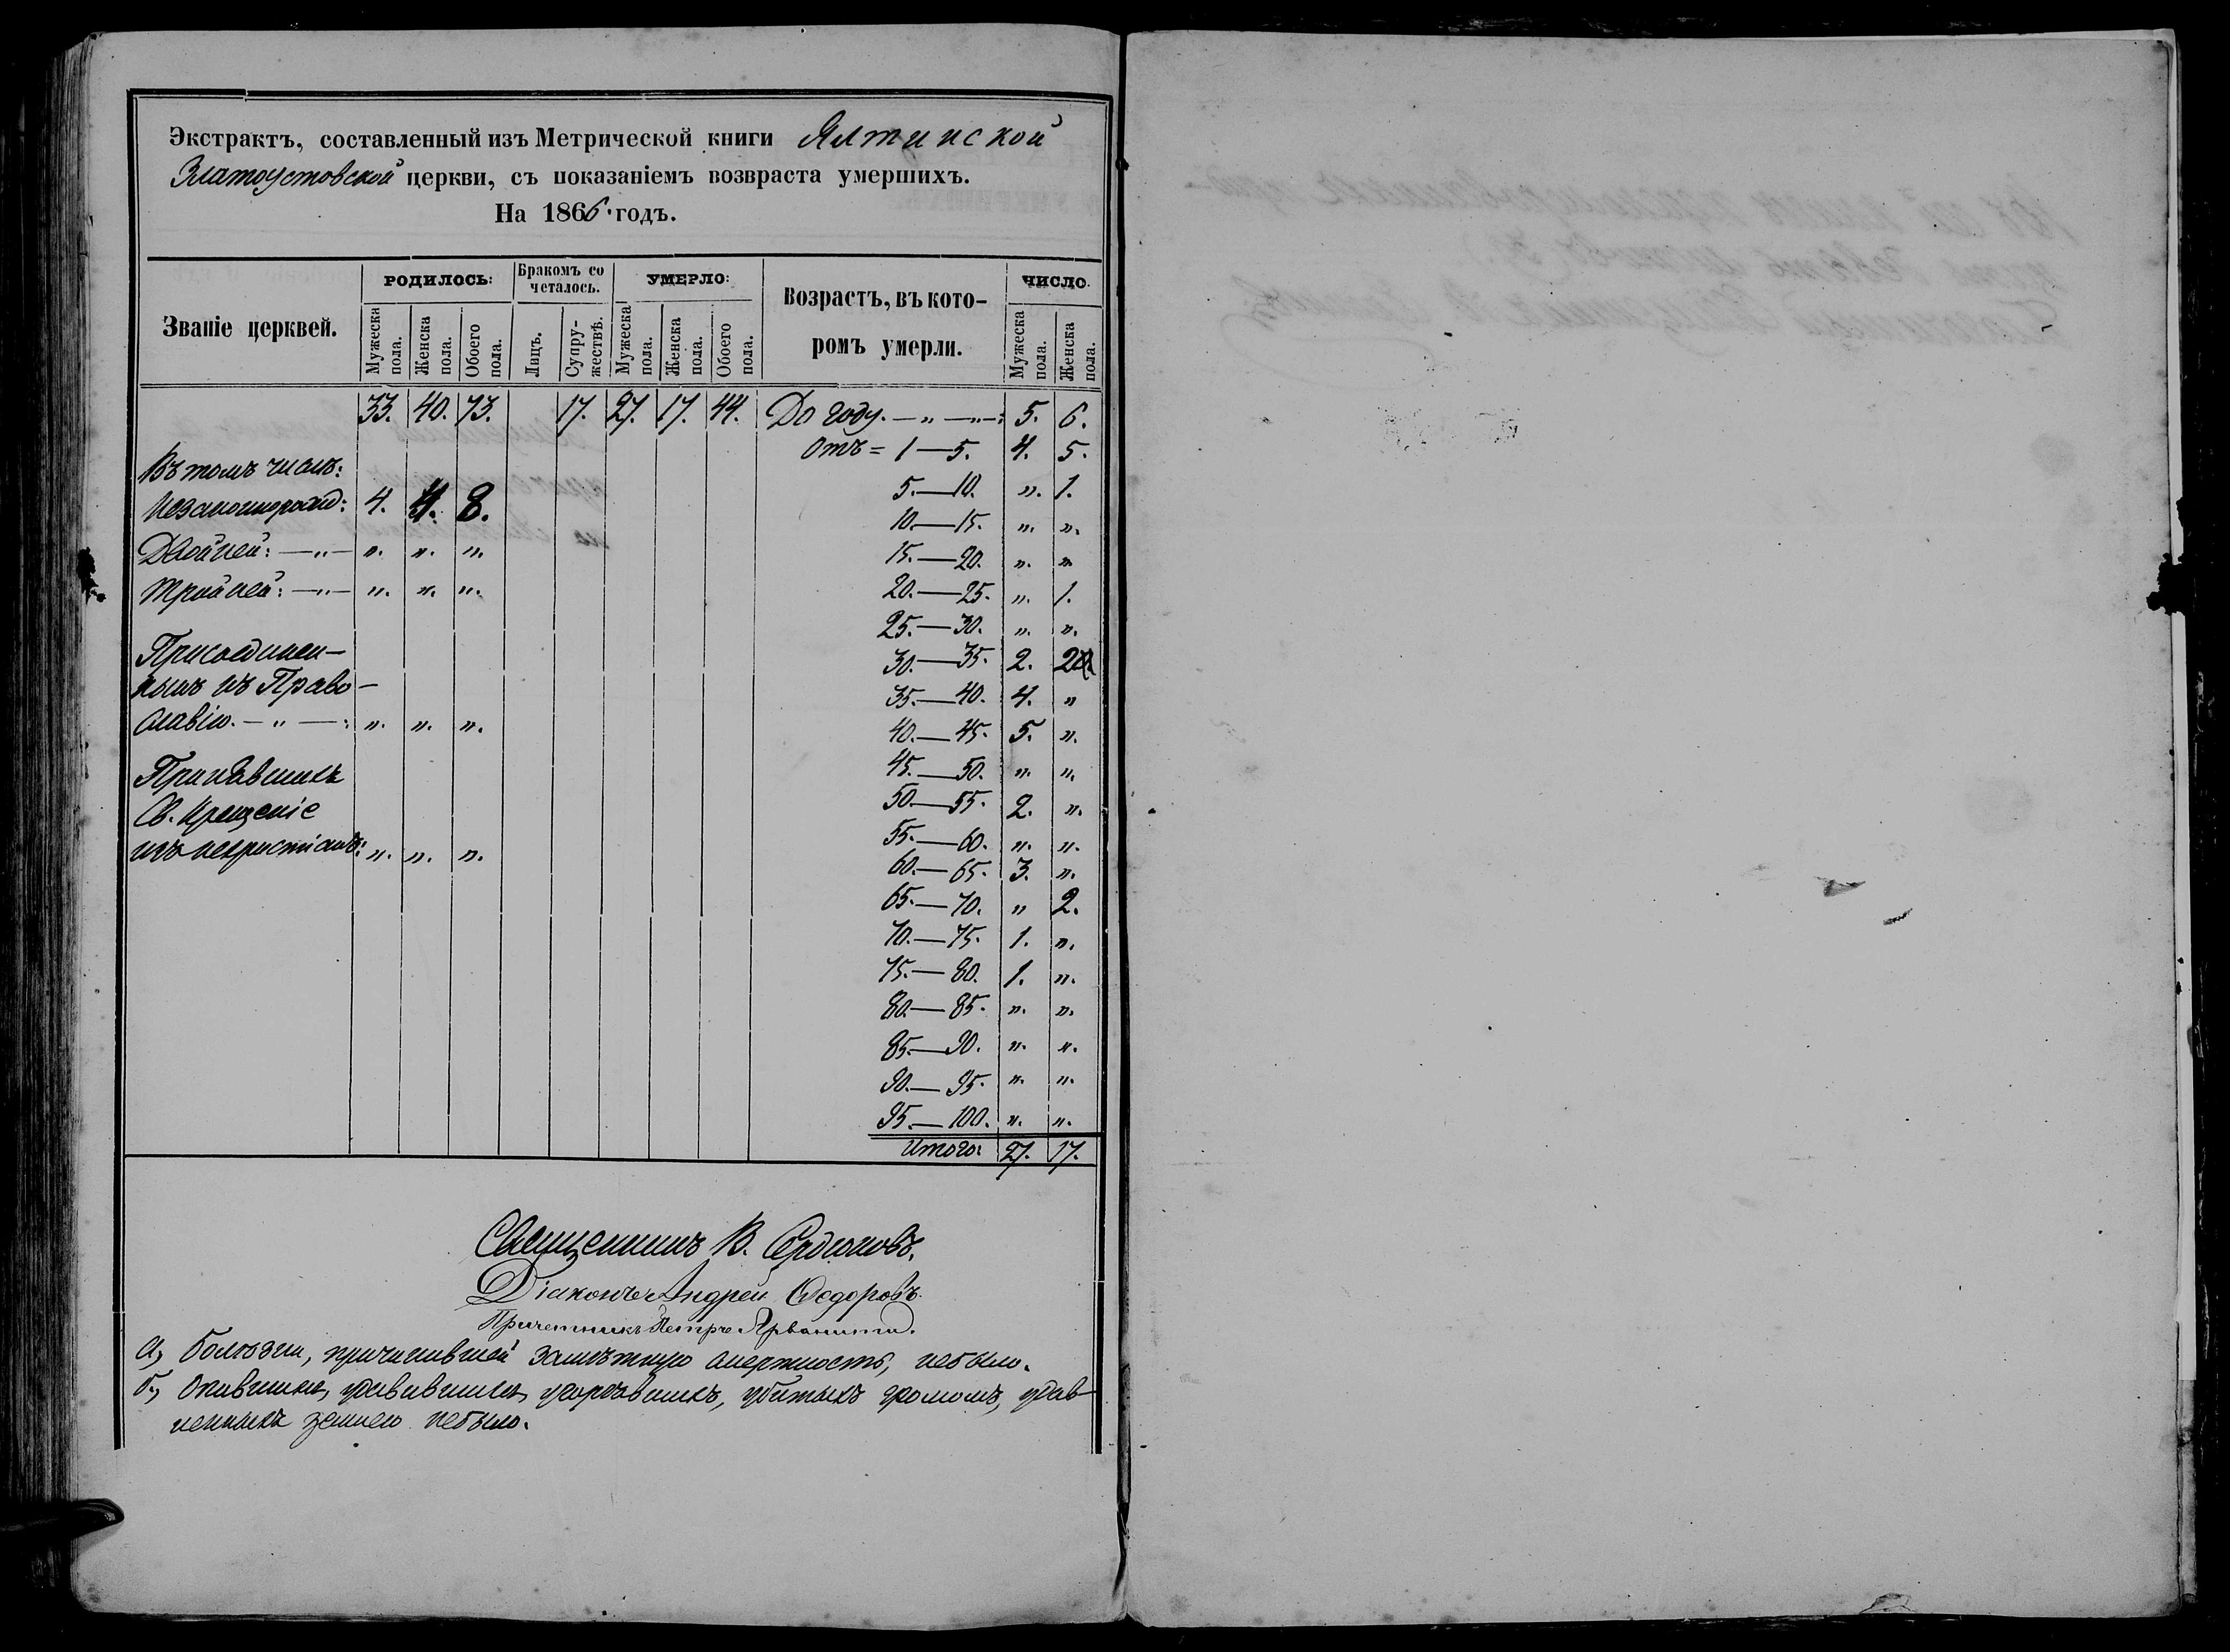 Экстрактъ, составленный изъ Метрической книги Ялтинской
Златоустовской церкви, съ показаніемъ возвраста умершихъ.
На 1866. годъ.
Званіе церквей. РОДИЛОСЬ: Бракомъ со четалось. УМЕРЛО: Возрастъ, въ кото- ромъ умерли. ЧИСЛО.
Мужеска пола. Женска пола. Обоего пола. Лицъ. Супру- жествъ. Мужеска пола. Женска пола. Обоего пола. Мужеска пола. Женска пола.
33. 40. 73. 17. 27. 17. 44. До году. — „ — „ —: 5. 6.
Отъ = 1 — 5. 4. 5.
Въ томъ числѣ:
5. — 10. „. 1.
Незаконнорожд: 4. 4. 8.
10. — 15. „. „.
Двойней: — „ — „. „. „.
15. — 20. „. „.
Тройней: — „ — „. „. „.
20. — 25. „. 1.
25. — 30. „. „.
Присоединен-
30. — 35. 2. 2
ныхъ къ Право-
35. — 40. 4. „
славію. — „ —: „. „. „.
40. — 45. 5. „.
45. — 50. „. „.
Принявшихъ
50. — 55. 2. „.
Св. Крещеніе
55. — 60. „. „.
изъ нехристіанъ: „. „. „.
60. — 65. 3. „.
65. — 70. „ 2.
70. — 75. 1. „.
75. — 80. 1. „.
80. — 85. „. „.
85. — 90. „. „.
90. — 95. „. „.
95. — 100. „. „.
Итого: 27. 17.
Священникъ В. Сердюковъ.
Діаконъ Андрей Ѳедоровъ.
Причетникъ Петръ Арванити.
а, Болѣзни, причинившей замѣтную смертность, небыло.
б, Опившихся, удавившихся, угорѣвшихъ, убитыхъ громомъ, удав-
ленныхъ землею небыло.